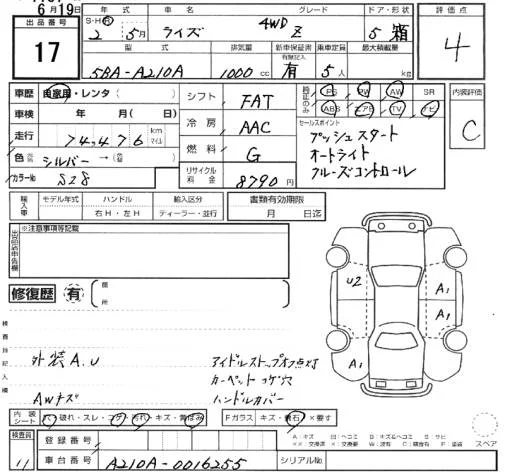 6月19日
出品番号
17
年式 車名 グレード ドア・形状
S・H・R 2年 5月 ライズ 4WD Z 5 箱
評価点
4
型式 排気量 新車保証書 乗車定員 最大積載量
有無記入
5BA-A210A 1000cc 有 5人 kg
車歴 自家用・レンタ( )
車検 年 月( )
走行 74,476 km マイル
色 シルバー → ( )
カラーNo S28
シフト FAT
冷房 AAC
燃料 G
リサイクル料金 8790円
純正のみ PS PW AW SR
ABS エアB TV ナビ
セールスポイント
プッシュスタート
オートライト
クルーズコントロール
内装評価
C
輸入車 モデル年式 ハンドル 輸入区分
年 右H・左H ディーラー・並行
書類有効期限
月 日迄
出品店申告欄
※注意事項等記載
修復歴 有 箇所
U2 A1 A1 A1
検査員記入欄
外装A.U アイドルストップオフ点灯
カーペットコゲ穴
AWキズ ハンドルカバー
内装シート 穴・破れ・スレ・コゲ・汚れ・キズ・黄ばみ
Fガラス キズ・飛石・×要す
A:キズ E:エクボ B:キズ&ヘコミ S:サビ
XX:交換済 X:交換要 W:波有 C:腐食有 P:塗装
スペア
検査員 11
登録番号
車台番号 A210A-0016255 シリアルNo.